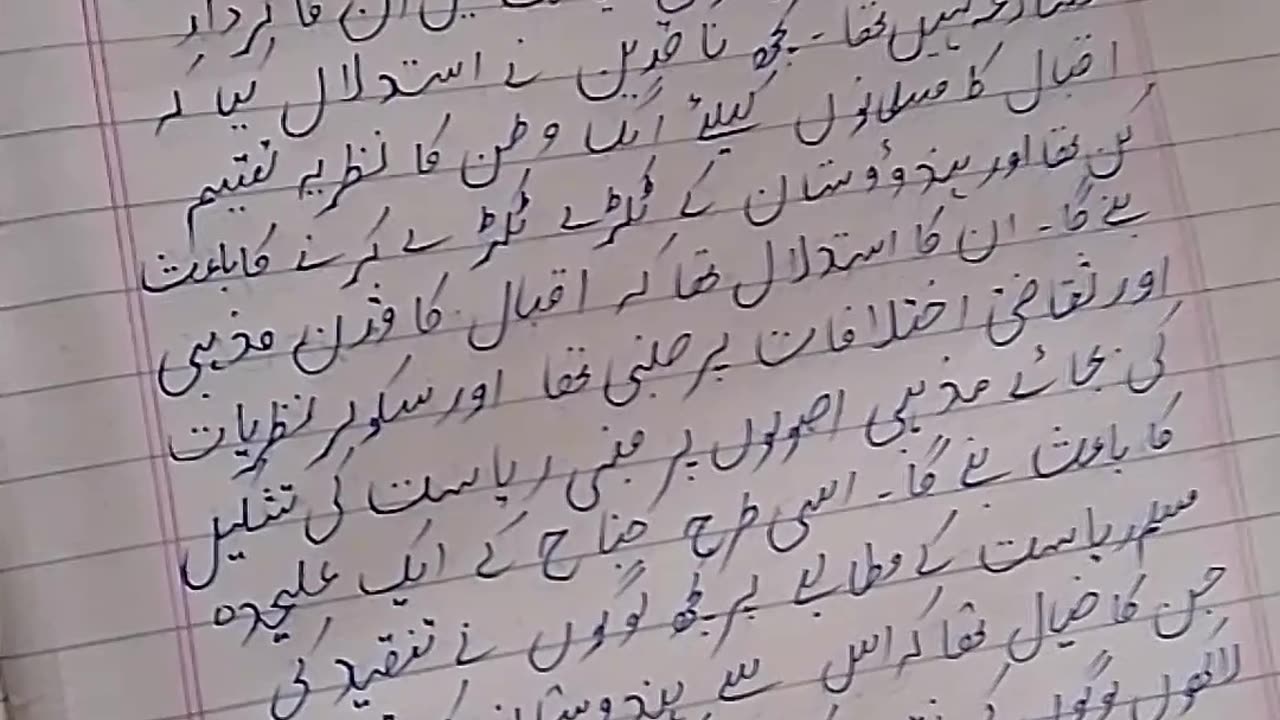 ان کا کردار
نہیں تھا۔ کچھ ناقدین نے استدلال کیا کہ
اقبال کا مسلمانوں کیلئے الگ وطن کا نظریہ تقسیم
کن تھا اور ہندوؤستان کے ٹکڑے ٹکڑے کرنے کا باعث
بنے گا۔ ان کا استدلال تھا کہ اقبال کا وژن مذہبی
اور ثقافتی اختلافات پر مبنی تھا اور سکولر نظریات
کی بجائے مذہبی اصولوں پر مبنی ریاست کی تشکیل
کا باعث بنے گا۔ اسی طرح جناح کے ایک علیحدہ
مسلم ریاست کے مطالبے پر کچھ لوگوں نے تنقید کی
جن کا خیال تھا کہ اس سے
لاکھوں لوگوں کی